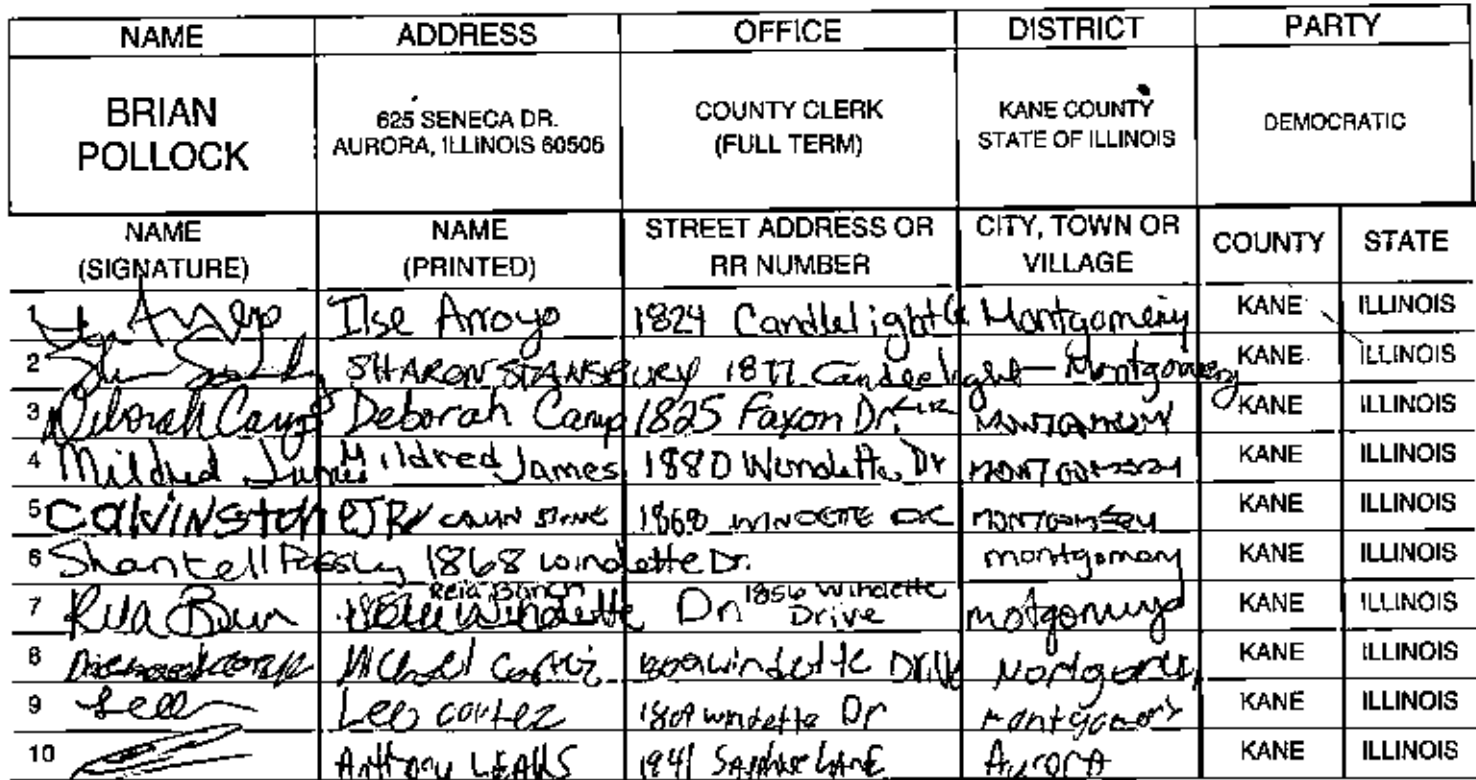 NAME ADDRESS OFFICE DISTRICT PARTY
BRIAN POLLOCK 625 SENECA DR. AURORA, ILLINOIS 60506 COUNTY CLERK (FULL TERM) KANE COUNTY STATE OF ILLINOIS DEMOCRATIC
NAME (SIGNATURE) NAME (PRINTED) STREET ADDRESS OR RR NUMBER CITY, TOWN OR VILLAGE COUNTY STATE
1 Ilse Arroyo 1824 Candlelight Montgomery KANE ILLINOIS
2 SHARON STANSBURY 1877 Candlelight Montgomery KANE ILLINOIS
3 Deborah Camp Deborah Camp 1825 Faxon Dr. KANE ILLINOIS
4 Mildred James Mildred James 1880 Windette Dr MONTGOMERY KANE ILLINOIS
5 CalviNStoneJR 1868 WINDETTE MONTGOMERY KANE ILLINOIS
6 Shantell 1868 windette Dr. montgomery KANE ILLINOIS
7 Windette Dr 1856 Windette Drive KANE ILLINOIS
8 Michael Cortez windette Drive KANE ILLINOIS
9 Lee Cortez 1809 windette Dr Montgomery KANE ILLINOIS
10 Anthony LEAKS 1941 LANE Aurora KANE ILLINOIS